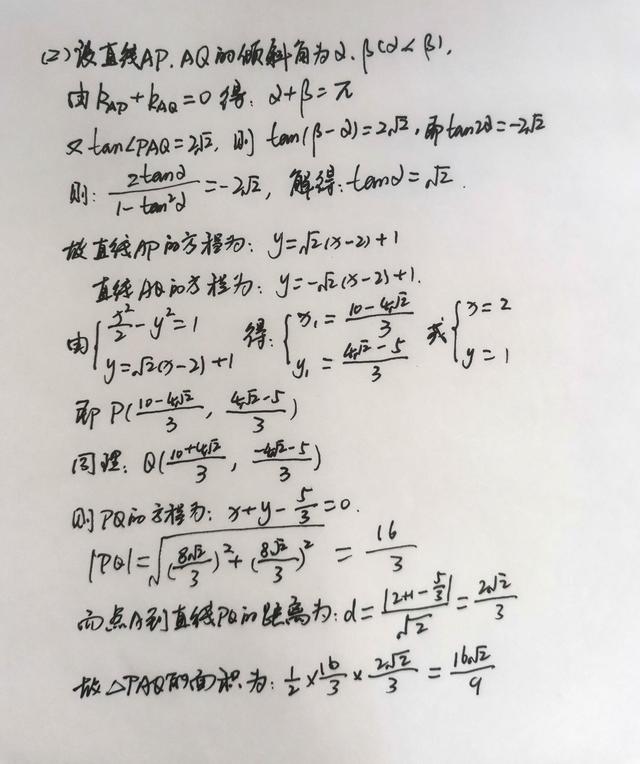 (2)设直线AP、AQ的倾斜角为α、β(α<β),
由k_AP+k_AQ=0得:α+β=π
又tan∠PAQ=2√2,则tan(β-α)=2√2,即tan2α=-2√2
则: 2tanα/(1-tan²α)=-2√2,解得:tanα=√2.
故直线AP的方程为:y=√2(x-2)+1
直线AQ的方程为:y=-√2(x-2)+1.
由{x²/2-y²=1 y=√2(x-2)+1 得:{x₁=(10-4√2)/3 y₁=(4√2-5)/3 或{x=2 y=1
即P((10-4√2)/3, (4√2-5)/3)
同理:Q((10+4√2)/3, (-4√2-5)/3)
则PQ的方程为:x+y-5/3=0.
|PQ|=√((8√2/3)²+(8√2/3)²)=16/3
而点A到直线PQ的距离为:d=|2+1-5/3|/√2=2√2/3
故△PAQ的面积为:1/2×16/3×2√2/3=16√2/9